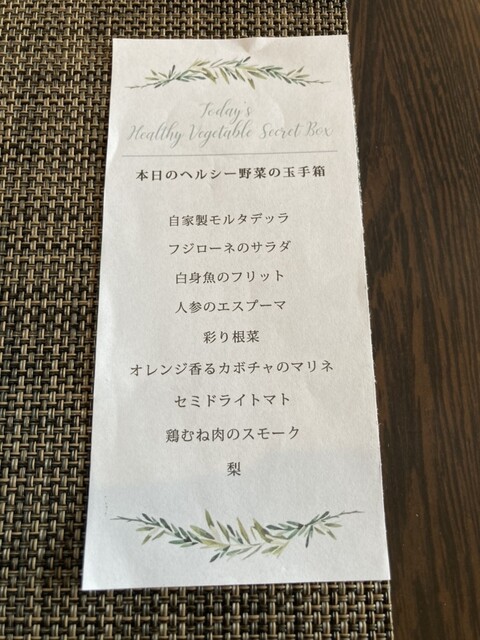 Today's
Healthy Vegetable Secret Box
本日のヘルシー野菜の玉手箱
自家製モルタデッラ
フジローネのサラダ
白身魚のフリット
人参のエスプーマ
彩り根菜
オレンジ香るカボチャのマリネ
セミドライトマト
鶏むね肉のスモーク
梨